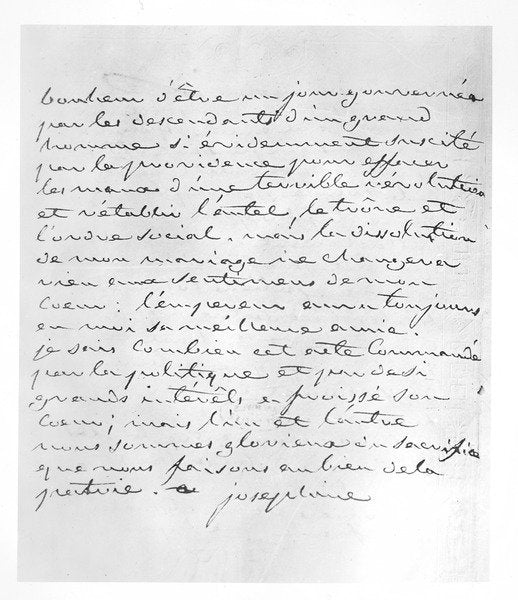 bonheur d'être un jour gouvernée
par les descendants d'un grand
homme si évidemment suscité
par la providence pour effacer
les maux d'une terrible révolution
et rétablir l'autel, le trône et
l'ordre social. mais la dissolution
de mon mariage ne changera
rien aux sentimens de mon
coeur: l'empereur aura toujours
en moi sa meilleure amie.
je sais combien cet acte commandé
par la politique et par de si
grands intérêts a froissé son
coeur; mais l'un et l'autre
nous sommes glorieux du sacrifice
que nous faisons au bien de la
patrie. josephine